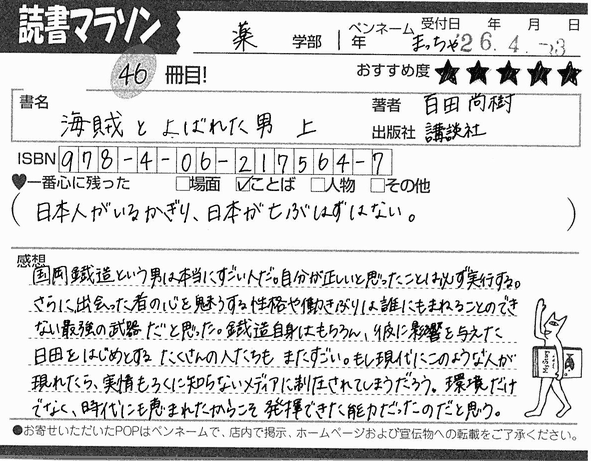 読書マラソン
薬 学部 年 ペンネーム まっちゃ 受付日 年 月 日
'26.4.-3
46 冊目! おすすめ度 ★★★★★
書名 海賊とよばれた男 上
著者 百田尚樹
出版社 講談社
ISBN 978-4-06-217564-7
♥一番心に残った □場面 ☑ことば □人物 □その他
(日本人がいるかぎり、日本が亡ぶはずはない。)
感想
国岡鐵造という男は本当にすごい人だ。自分が正しいと思ったことは必ず実行する。
さらに出会った者の心を魅了する性格や働きぶりは誰にもまねることのでき
ない最強の武器だと思った。鐵造自身はもちろん、彼に影響を与えた
日田をはじめとするたくさんの人たちもまたすごい。もし現代にこのような人が
現れたら、実情もろくに知らないメディアに制圧されてしまうだろう。環境だけ
でなく、時代にも恵まれたからこそ発揮できた能力だったのだと思う。
●お寄せいただいたPOPはペンネームで、店内で掲示、ホームページおよび宣伝物への転載をご了承ください。